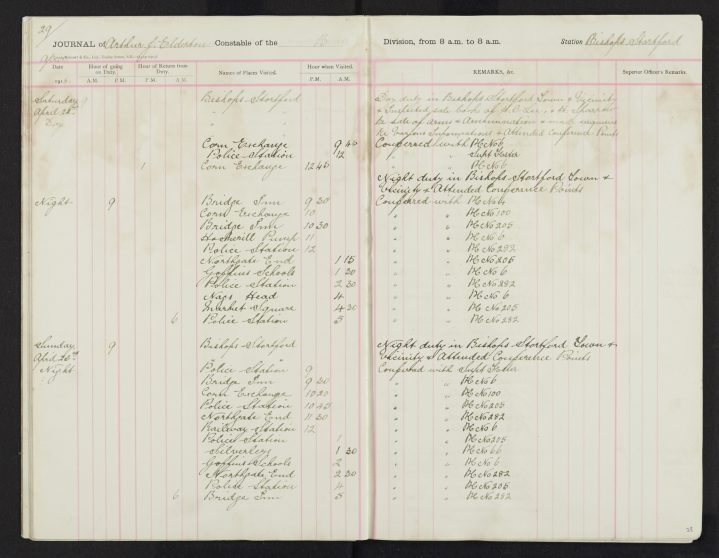 29
JOURNAL of Arthur J. Elderton Constable of the
Division, from 8 a.m. to 8 a.m. Station Bishops Stortford
Date Hour of going on Duty. Hour of Return from Duty. Names of Places Visited. Hour when Visited. REMARKS, &c. Superior Officer's Remarks.
191 A.M. P.M. P.M. A.M. P.M. A.M.
Saturday 9 Bishops Stortford Day duty in Bishops Stortford Town & Vicinity
April 25th " " & Inspected sale book of
Day " " re sale of arms & Ammunition & made enquiries
" " re Various Informations & Attended Conference Points
Corn Exchange 9 45 Conferred with PC No 6
Police Station 12 " " Supt
1 Corn Exchange 12 45 " " PC No 6
Night duty in Bishops Stortford Town &
Vicinity & Attended Conference Points
Night 9 Bridge Inn 9 30 Conferred with PC No 6
Corn Exchange 10 " " PC No 100
Bridge Inn 10 30 " " PC No 205
Hockerill Pump 11 " " PC No 6
Police Station 12 " " PC No 282
Northgate End 1 15 " " PC No 205
Goffins Schools 1 30 " " PC No 6
Police Station 2 30 " " PC No 282
Nags Head 4 " " PC No 6
Market Square 4 30 " " PC No 205
6 Police Station 5 " " PC No 282
Sunday 9 Bishops Stortford Night duty in Bishops Stortford Town &
April 26th " " Vicinity & Attended Conference Points
Night Police Station 9 Conferred with Supt
Bridge Inn 9 30 " " PC No 6
Corn Exchange 10 20 " " PC No 100
Police Station 10 45 " " PC No 205
Northgate End 11 30 " " PC No 282
Railway Station 12 " " PC No 6
Police Station 1 " " PC No 205
Silverleys 1 30 " " PC No 66
Goffins Schools 2 " " PC No 6
Northgate End 2 30 " " PC No 282
Police Station 4 " " PC No 205
6 Bridge Inn 5 " " PC No 282